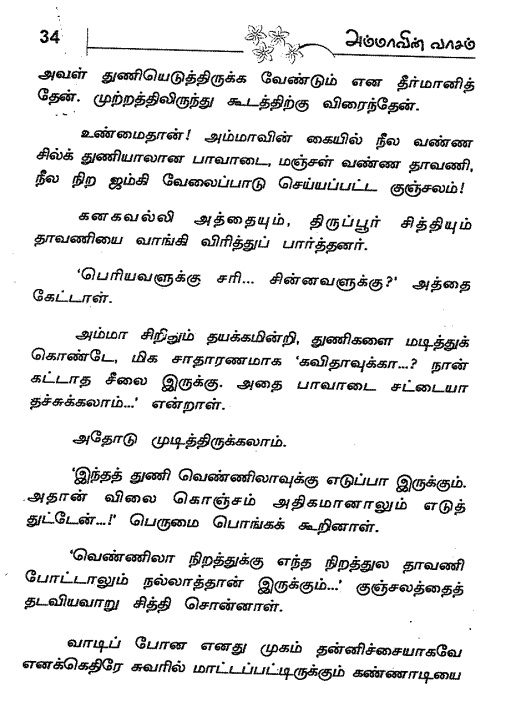 34
அம்மாவின் வாசம்
அவள் துணியெடுத்திருக்க வேண்டும் என தீர்மானித்
தேன். முற்றத்திலிருந்து கூடத்திற்கு விரைந்தேன்.
உண்மைதான்! அம்மாவின் கையில் நீல வண்ண
சில்க் துணியாலான பாவாடை, மஞ்சள் வண்ண தாவணி,
நீல நிற ஜம்கி வேலைப்பாடு செய்யப்பட்ட குஞ்சலம்!
கனகவல்லி அத்தையும், திருப்பூர் சித்தியும்
தாவணியை வாங்கி விரித்துப் பார்த்தனர்.
'பெரியவளுக்கு சரி... சின்னவளுக்கு?' அத்தை
கேட்டாள்.
அம்மா சிறிதும் தயக்கமின்றி, துணிகளை மடித்துக்
கொண்டே, மிக சாதாரணமாக 'கவிதாவுக்கா...? நான்
கட்டாத சீலை இருக்கு. அதை பாவாடை சட்டையா
தச்சுக்கலாம்...' என்றாள்.
அதோடு முடித்திருக்கலாம்.
'இந்தத் துணி வெண்ணிலாவுக்கு எடுப்பா இருக்கும்.
அதான் விலை கொஞ்சம் அதிகமானாலும் எடுத்
துட்டேன்...!' பெருமை பொங்கக் கூறினாள்.
'வெண்ணிலா நிறத்துக்கு எந்த நிறத்துல தாவணி
போட்டாலும் நல்லாத்தான் இருக்கும்...' குஞ்சலத்தைத்
தடவியவாறு சித்தி சொன்னாள்.
வாடிப் போன எனது முகம் தன்னிச்சையாகவே
எனக்கெதிரே சுவரில் மாட்டப்பட்டிருக்கும் கண்ணாடியை